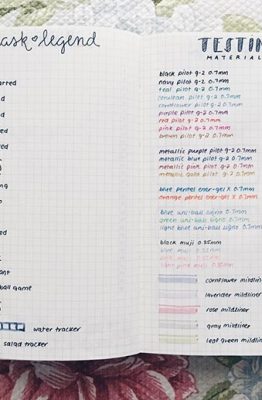 ask & legend
arted
ing
ant
ball game
water tracker
salad tracker
TESTIN
MATERIAL
black pilot g-2 0.7mm
navy pilot g-2 0.7mm
teal pilot g-2 0.7mm
cerulean pilot g-2 0.7mm
cornflower pilot g-2 0.7mm
purple pilot g-2 0.7mm
red pilot g-2 0.7mm
pink pilot g-2 0.7mm
brown pilot g-2 0.7mm
metallic purple pilot g-2 0.7mm
metallic blue pilot g-2 0.7mm
metallic pink pilot g-2 0.7mm
metallic gold pilot g-2 0.7mm
blue pentel energel x 0.7mm
orange pentel energel x 0.7mm
blue uni-ball signo 0.7mm
green uni-ball signo 0.7mm
light blue uni-ball signo 0.7mm
black muji 0.38mm
blue muji 0.38mm
pink muji 0.38mm
light pink muji 0.38mm
cornflower mildliner
lavender mildliner
rose mildliner
gray mildliner
leaf green mildliner